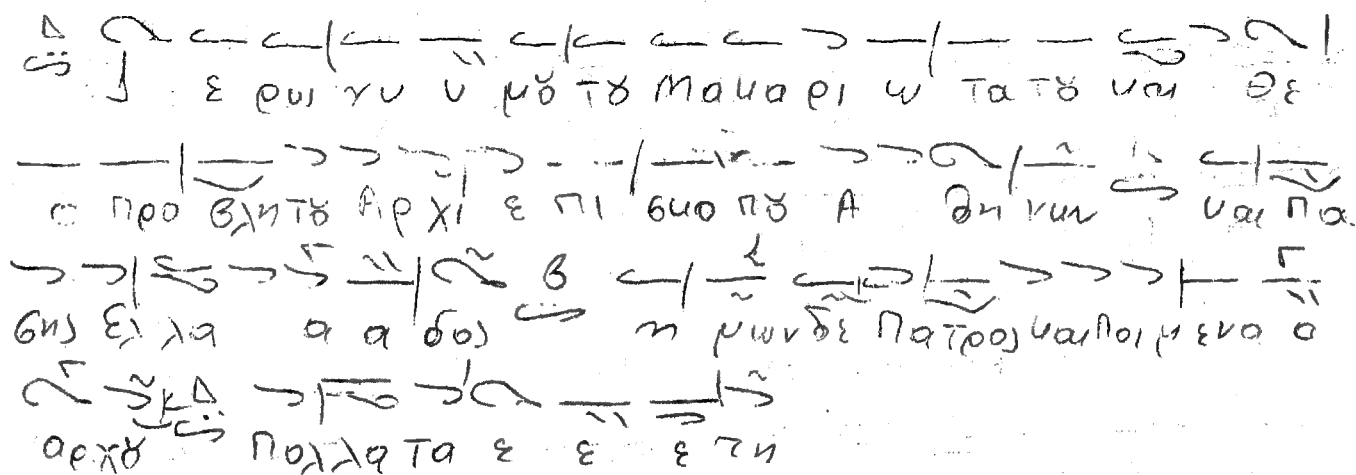 Ι ε ρω νυ υ μȣ τȣ Μα κα ρι ω τα τȣ και Θε
ο προ βλη τȣ Αρ χι ε πι σκο πȣ Α θη νων και Πα
σης Ελ λα α α δος η μων δε Πα τρος και ποι μ ε να α
αρ χȣ Πολ λα τα ε ε ε τη